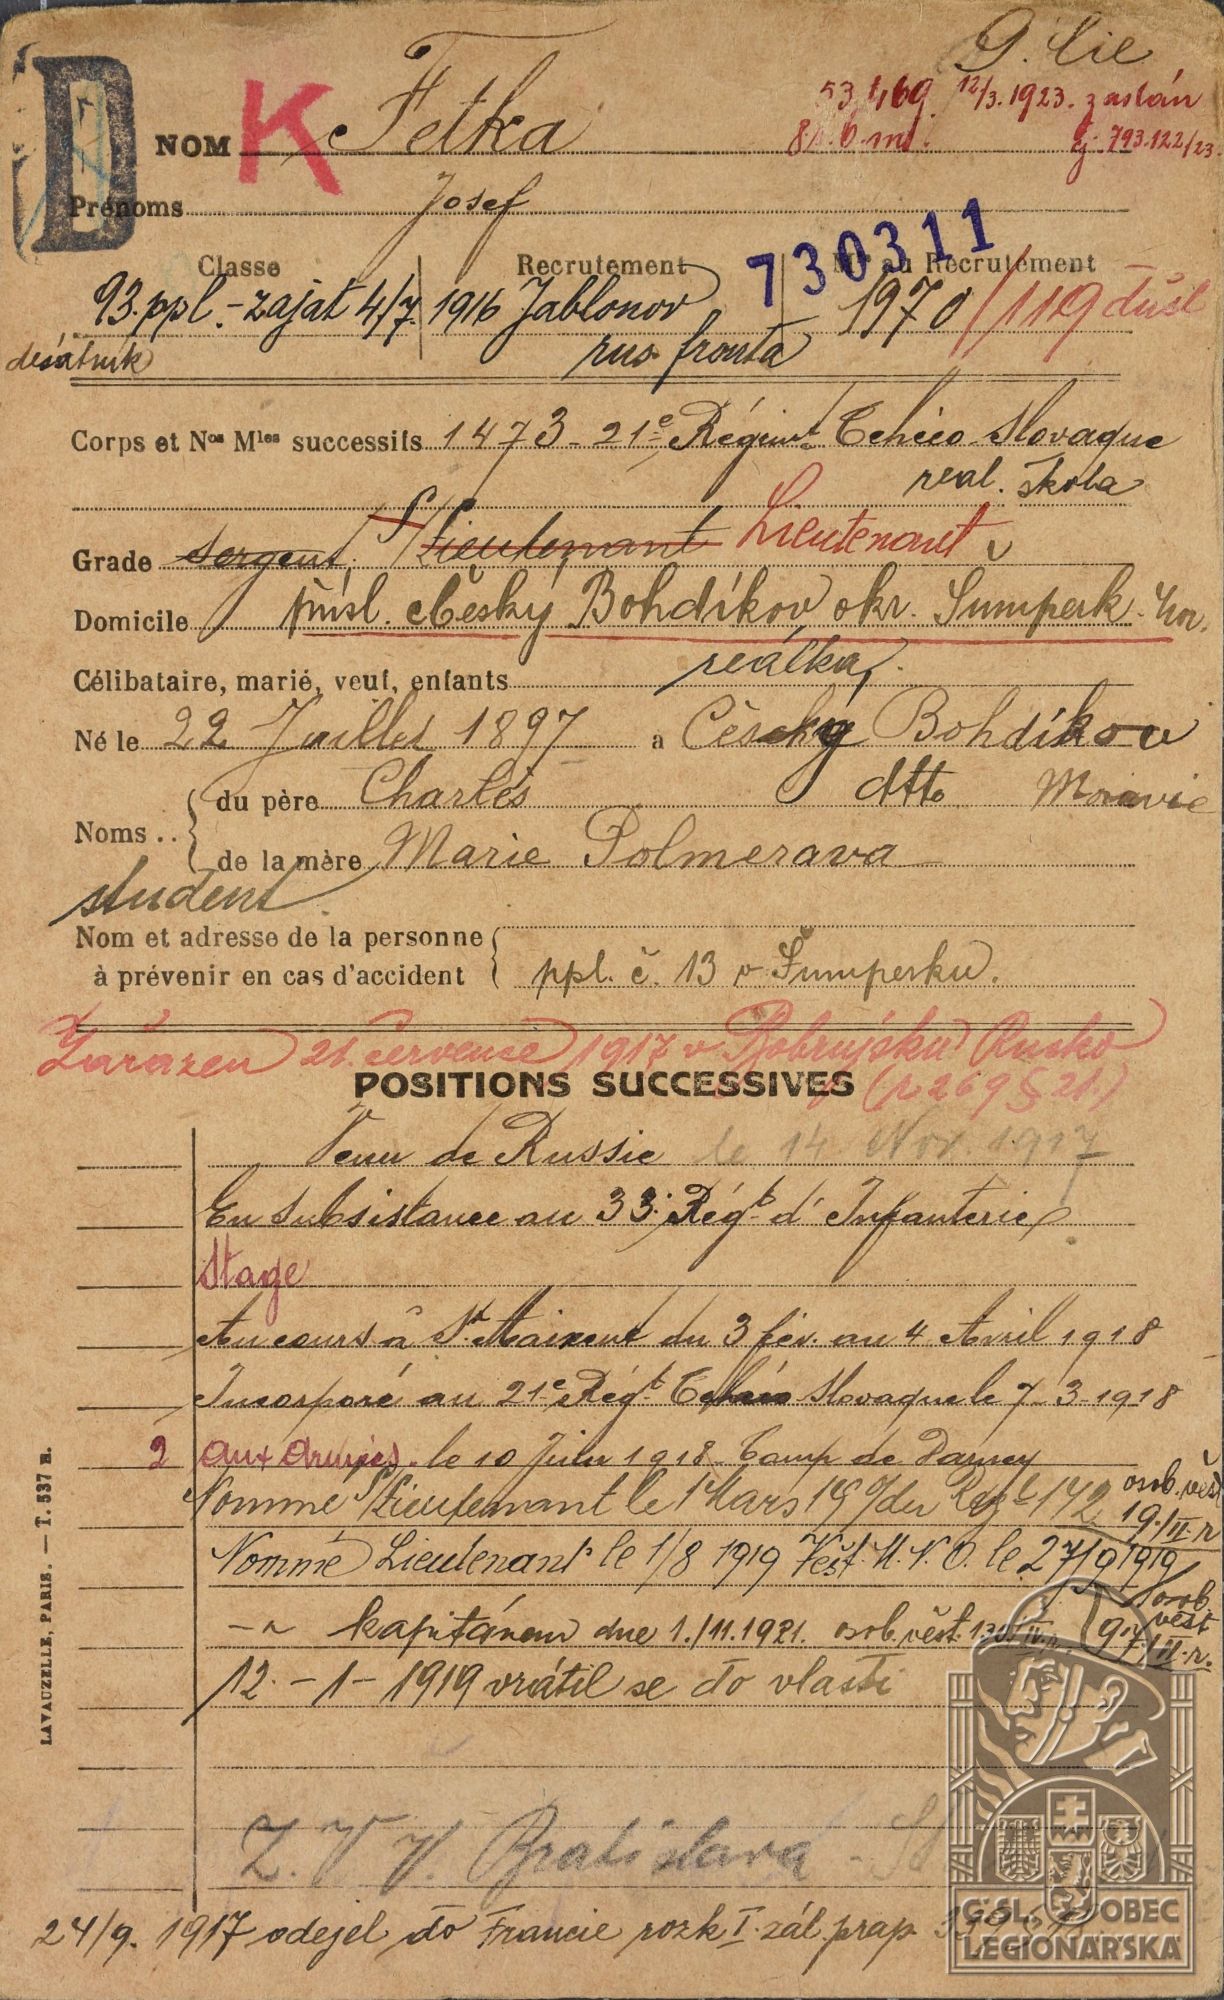 9. Cie
D K
53,469 12/3. 1923. zaslán
NOM Fetka
čj. 793.122/23.
Prénoms Josef
730311
Classe Recrutement No au Recrutement
93. ppl. - zajat 4/7. 1916 Jablonov 1970/119 důst
desátník rus. fronta
Corps et Nos Mles successifs 1473 - 21e Régimt Tchéco-Slovaque
real. škola
Grade Sergent S/Lieutenant Lieutenant
Domicile přísl. Český Bohdíkov, okr. Šumperk. Mor.
Célibataire, marié, veuf, enfants reálka.
Né le 22 Juillet 1897 a Český Bohdíkov
Noms .. du père Charles dtto Moravie
de la mère Marie Polmerava
student.
Nom et adresse de la personne
à prévenir en cas d'accident ppl. č. 13 v Šumperku.
Zařazen 21. července 1917 v Bobrujsku Rusko
POSITIONS SUCCESSIVES
(r 269 § 21.)
Venu de Russie le 14 Nov 1917
En subsistance au 33e Régt d'Infanterie
Stage
Au cours à St Maixent du 3 fév. au 4 Avril 1918
Incorporé au 21e Régt Tchéco Slovaque le 7-3-1918
2 aux armées. le 10 Juin 1918 Camp de Darney
Nommé S/Lieutenant le 1 Mars 19 du Regt 172 osob. věst
19./II. r
Nommé Lieutenant le 1/8 1919 Věst. M. N. O. le 27/9 1919
-"- kapitánem dne 1./11. 1921. osob. věst. osob. věst
12. - 1 - 1919 vrátil se do vlasti
Z. V. V. Bratislava
24/9. 1917 odejel do Francie rozk I. zál. prap.
LAVAUZELLE, PARIS. — T. 537 B.
ČSL. OBEC
LEGIONÁŘSKÁ